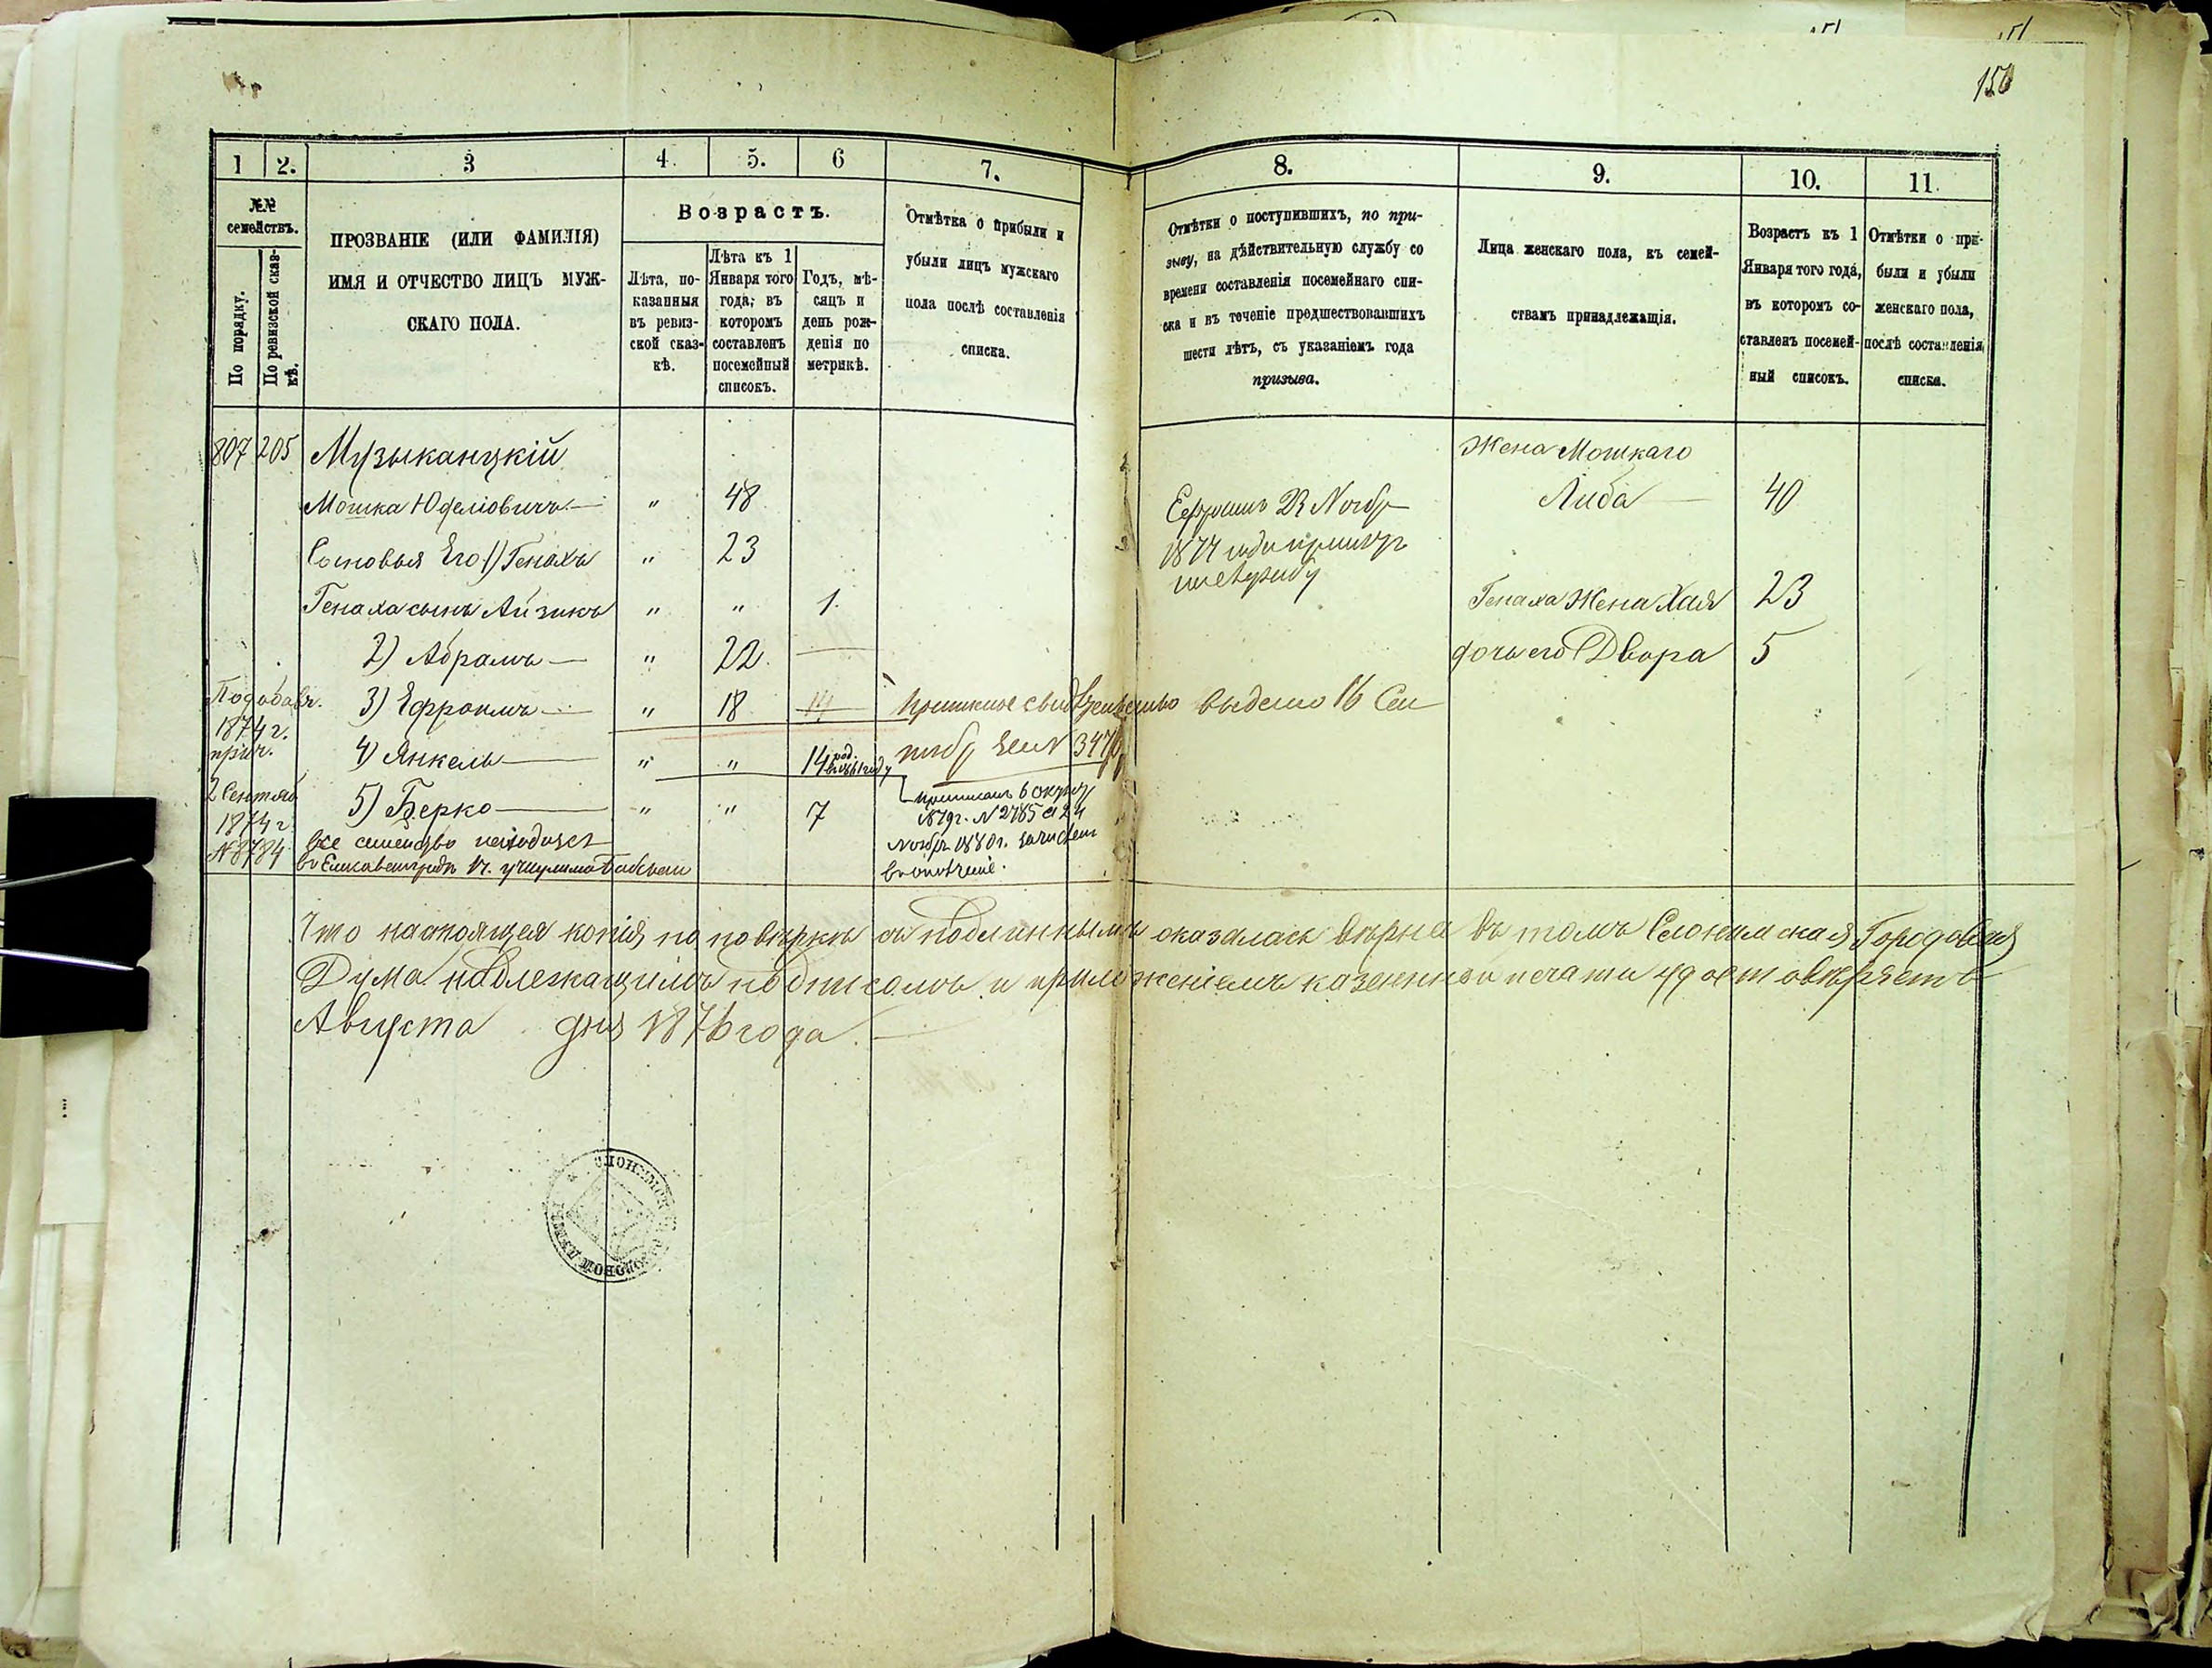 150
1
2.
3
4.
5.
6
7.
8.
9.
10.
11.
№№
семействъ.
По порядку.
По ревизской сказ-
кѣ.
ПРОЗВАНІЕ (ИЛИ ФАМИЛІЯ)
ИМЯ И ОТЧЕСТВО ЛИЦЪ МУЖ-
СКАГО ПОЛА.
Возрастъ.
Лѣта, по-
казанныя
въ ревиз-
ской сказ-
кѣ.
Лѣта къ 1
Января того
года; въ
которомъ
составленъ
посемейный
списокъ.
Годъ, мѣ-
сяцъ и
день рож-
денія по
метрикѣ.
Отмѣтка о прибыли и
убыли лицъ мужскаго
пола послѣ составленія
списка.
Отмѣтки о поступившихъ, по при-
зыву, на дѣйствительную службу со
времени составленія посемейнаго спи-
ска и въ теченіе предшествовавшихъ
шести лѣтъ, съ указаніемъ года
призыва.
Лица женскаго пола, къ семей-
ствамъ принадлежащія.
Возрастъ къ 1
Января того года,
въ которомъ со-
ставленъ посемей-
ный списокъ.
Отмѣтки о при-
были и убыли
женскаго пола,
послѣ составленія
списка.
807 205 Музыканцкій Жена Мошкаго
Мошка Юделіовичъ " 48 Ефроимъ 23 Ноябр Либа 40
Сыновья Его 1) Генахъ " 23 1877 года
Генаха сынъ Айзикъ " " 1. Генаха Жена Хая 23
2) Абрамъ " 22 дочь его Двора 5
3) Ефроимъ " 18 14 выдано 16 Сен
1874 г.
4) Янкель " " 14 347
2 Сентяб
5) Берко " " 7
1874 г.
№8784
1879г. №2785 24
Ноябр 1880г.
все семейство находится
въ Елисаветградѣ
Что настоящая копія по повѣркѣ съ подлиннымъ оказалась вѣрна въ томъ Слонимская Городовая
Дума надлежащимъ подписомъ и приложеніемъ казенной печати удостовѣряетъ
Августа дня 1876 года.